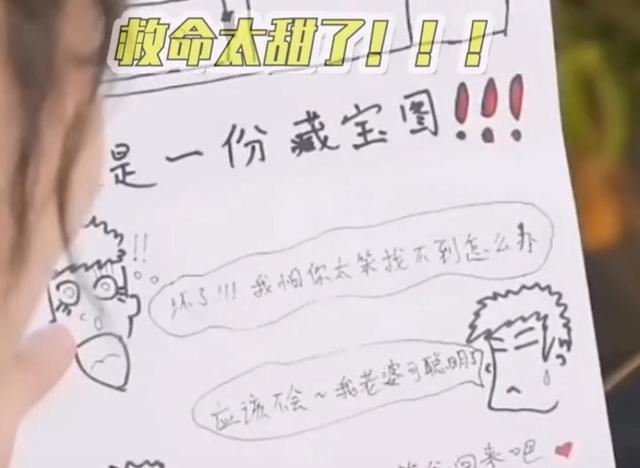 救命太甜了！！！
是一份藏宝图!!!
!!
坏了!!!我怕你太笨找不到怎么办
应该不会~我老婆可聪明了
回来吧